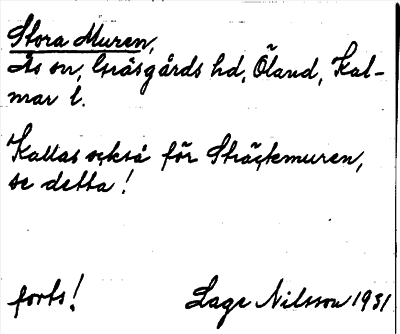 Stora Muren,
Ås sn, Gräsgårds hd, Öland, Kal-
mar l.
Kallas också för Sträckemuren,
se detta!
forts! Lage Nilsson 1931